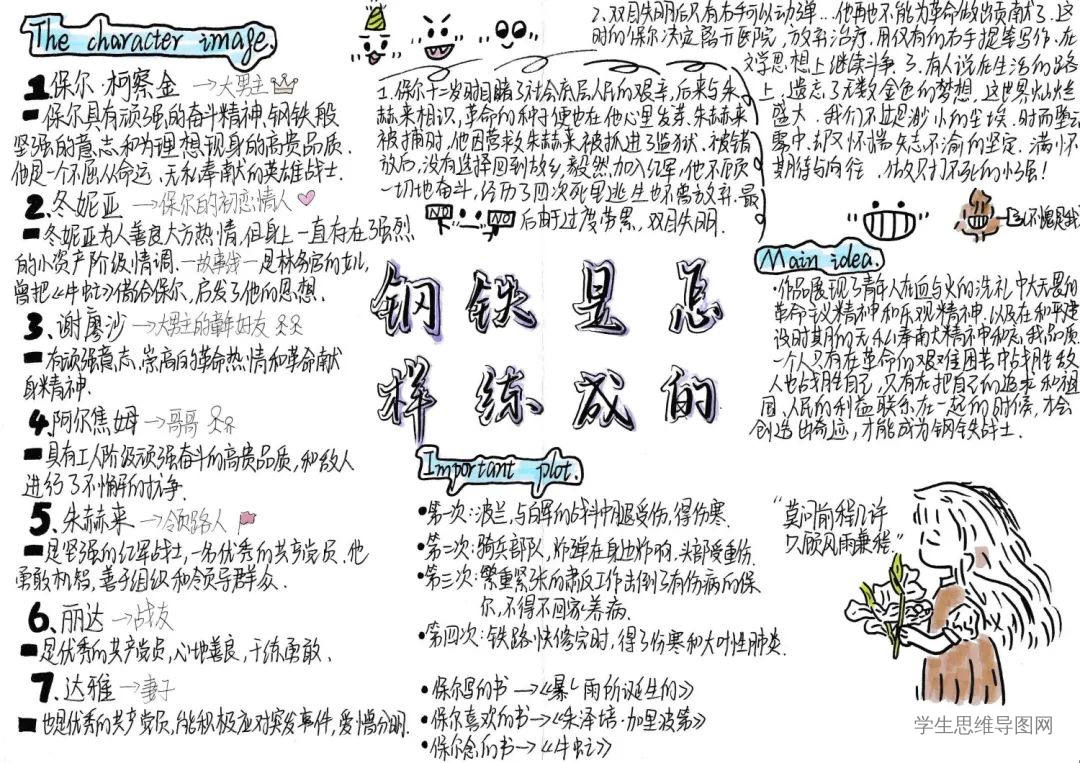 The character image.
1.保尔·柯察金→大男主
保尔具有顽强的奋斗精神,钢铁般
坚强的意志和为理想现身的高贵品质.
他是一个不屈从命运、无私奉献的英雄战士.
2.冬妮亚→保尔的初恋情人
冬妮亚为人善良大方热情,但身上一直存在了强烈
的小资产阶级情调.一故事线一是林务官的女儿,
曾把《牛虻》借给保尔,启发了他的思想.
3.谢廖沙→大男主的青年好友
有顽强意志,崇高的革命热情和革命献
身精神.
4.阿尔焦姆→哥哥
具有工人阶级顽强奋斗的高贵品质,和敌人
进行了不懈的抗争.
5.朱赫来→领路人
是坚强的红军战士,一名优秀的共产党员.他
勇敢机智,善于组织和领导群众.
6.丽达→战友
是优秀的共产党员,心地善良,干练勇敢.
7.达雅→妻子
也是优秀的共产党员,能积极应对突发事件,爱憎分明.
1.保尔十二岁时目睹了社会底层人民的艰辛,后来与朱
赫来相识,革命的种子便也在他心里发芽.朱赫来
被捕时,他因营救朱赫来被抓进了监狱.被错
放后,没有选择回到故乡,毅然加入红军,他不顾
一切地奋斗,经历了四次死里逃生也不曾放弃.最
NO NO 后由于过度劳累,双目失明.
2.双目失明后只有右手可以动弹…他再也不能为革命做出贡献了.这
时的保尔决定离开医院,放弃治疗.用仅有的右手提笔写作.在
文学思想上继续斗争.3.有人说在生活的路
上,遗忘了无数金色的梦想.这世界灿烂
盛大.我们不过是渺小的尘埃.时而坠入
雾中.却又怀揣矢志不渝的坚定.满怀
期待与向往.做只打不死的小强!
不愧是我
钢铁是怎
样练成的
Main idea.
·作品展现了青年人在血与火的洗礼中大无畏的
革命主义精神和乐观精神.以及在和平建
设时期的无私奉献精神和忘我品质.
一个人只有在革命的艰难困苦中战胜敌
人也战胜自己,只有在把自己的追求和祖
国、人民的利益联系在一起的时候,才会
创造出奇迹,才能成为钢铁战士.
Important plot.
·第一次:波兰,与白军的战斗中腿受伤,得伤寒.
·第二次:骑兵部队,炸弹在身边炸响.头部受重伤.
·第三次:繁重紧张的肃反工作击倒了有伤病的保
尔,不得不回家养病.
·第四次:铁路快修完时,得了伤寒和大叶性肺炎.
·保尔写的书→《暴风雨所诞生的》
·保尔喜欢的书→《朱泽培·加里波第》
·保尔念的书→《牛虻》
“莫问前程几许
只顾风雨兼程.”
学生思维导图网